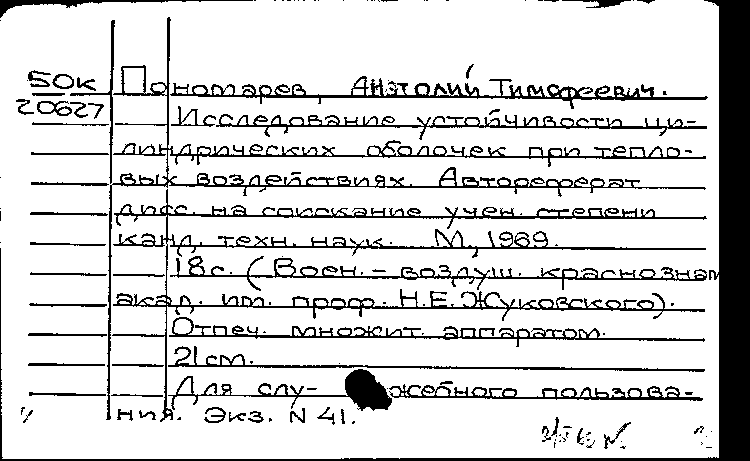 БОК Пономарев, Анатолий Тимофеевич.
20627
Исследование устойчивости ци-
линдрических оболочек при тепло-
вых воздействиях. Автореферат
дисс. на соискание учен. степени
канд. техн. наук. М., 1969.
18с. (Воен.-воздуш. краснознам
акад. им. проф. Н.Е.Жуковского).
Отпеч. множит. аппаратом.
21 см.
Для слу- жебного пользова-
ния. Экз. N 41.